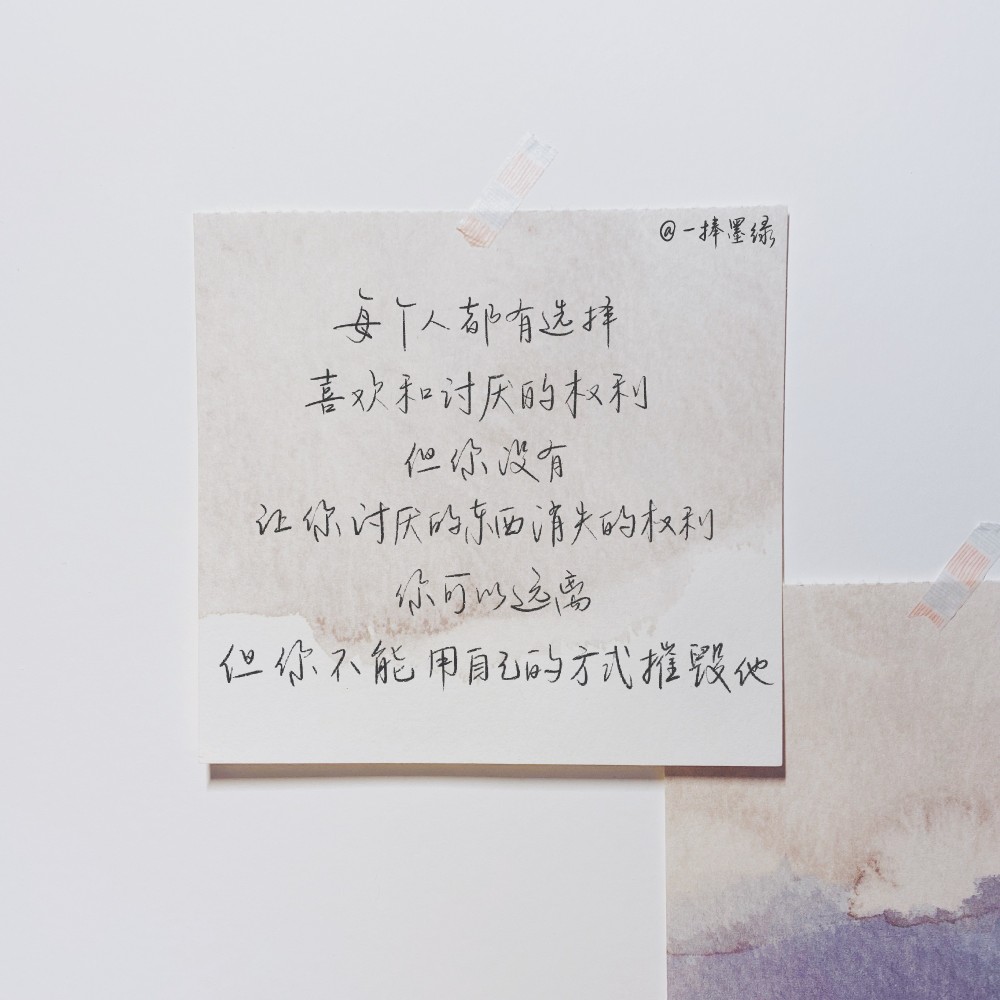 @一捧墨绿
每个人都有选择
喜欢和讨厌的权利
但你没有
让你讨厌的东西消失的权利
你可以远离
但你不能用自己的方式摧毁他